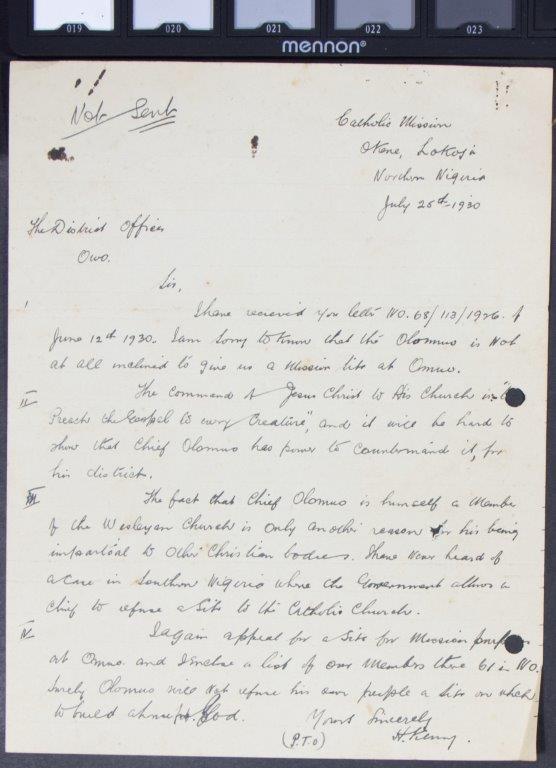 019 020 021 022 023
mennon®
Not Sent
Catholic Mission
Okene, Lokoja
Northern Nigeria
July 25th 1930
The District Officer
Owo.
Sir,
I
I have recieved your letter NO. 68/113/1926 of
June 12th 1930. I am sorry to know that the Olomuo is not
at all inclined to give us a Mission Site at Omuo.
II
The command of Jesus Christ to His Church is "to
Preach the Gospel to every Creature", and it will be hard to
show that Chief Olomuo has power to countermand it, for
his district.
III
The fact that Chief Olomuo is himself a Member
of the Wesleyan Church is only another reason for his being
impartial to other Christian bodies. I have never heard of
a case in Southern Nigeria where the Government allows a
Chief to refuse a Site to the Catholic Church.
IV
I again appeal for a Site for Mission purposes
at Omuo and I enclose a list of our Members there 61 in NO.
Surely Olomuo will not refuse his own people a Site on which
to build a house for God.
Yours Sincerely
(P.T.O) H. Kenny.